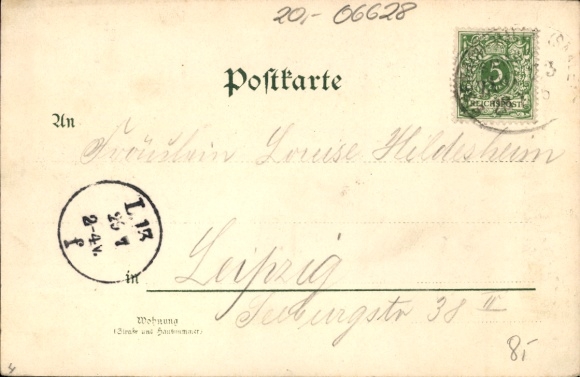 20,- 06628
Postkarte
5
REICHSPOST
An
Fräulein Louise Hildesheim
L 13
26 7
2-4V.
in Leipzig
Wohnung
(Straße und Hausnummer)
Seeburgstr 38 II
8,-
4